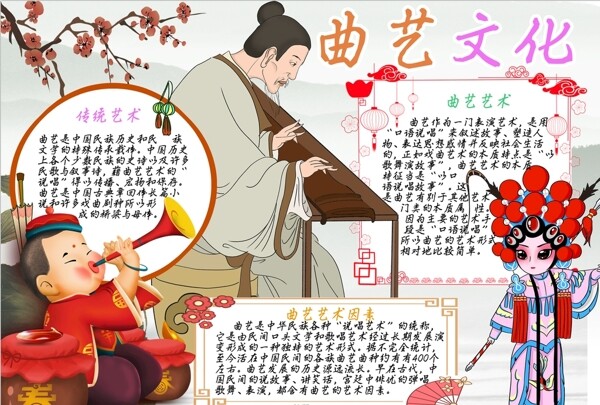 曲艺文化
传统艺术
曲艺是中国民族历史和民 族
文学的特殊传承载体，中国历史
上各个少数民族的史诗以及许多
民歌与叙事诗，藉曲艺艺术的“
说唱”得以传播、宏扬和保存。
曲艺是中国古典章回体长篇小
说和许多戏曲剧种所以形
成的桥梁与母体。
曲艺艺术
曲艺作为一门表演艺术，是用
“口语说唱”来叙述故事、塑造人
物、表达思想感情并反映社会生活
的，正如戏曲艺术的本质特点是“以
歌舞演故事”，曲艺艺术的本质
特征当是“以口
语说唱故事”。这
是曲艺有别于其他艺术
门类的本质属 性。
因为主要的艺术手
段是“口语说唱”
所以曲艺的艺术形式
相对地比较简单。
曲艺艺术因素
曲艺是中华民族各种“说唱艺术”的统称，
它是由民间口头文学和歌唱艺术经过长期发展演
变形成的一种独特的艺术形式。据不完全统计，
至今活在中国民间的各族曲艺曲种约有有400个
左右。曲艺发展的历史源远流长。早在古代，中
国民间的说故事、讲笑话，宫廷中俳优的弹唱
歌舞、表演，都含有曲艺的艺术因素。
春